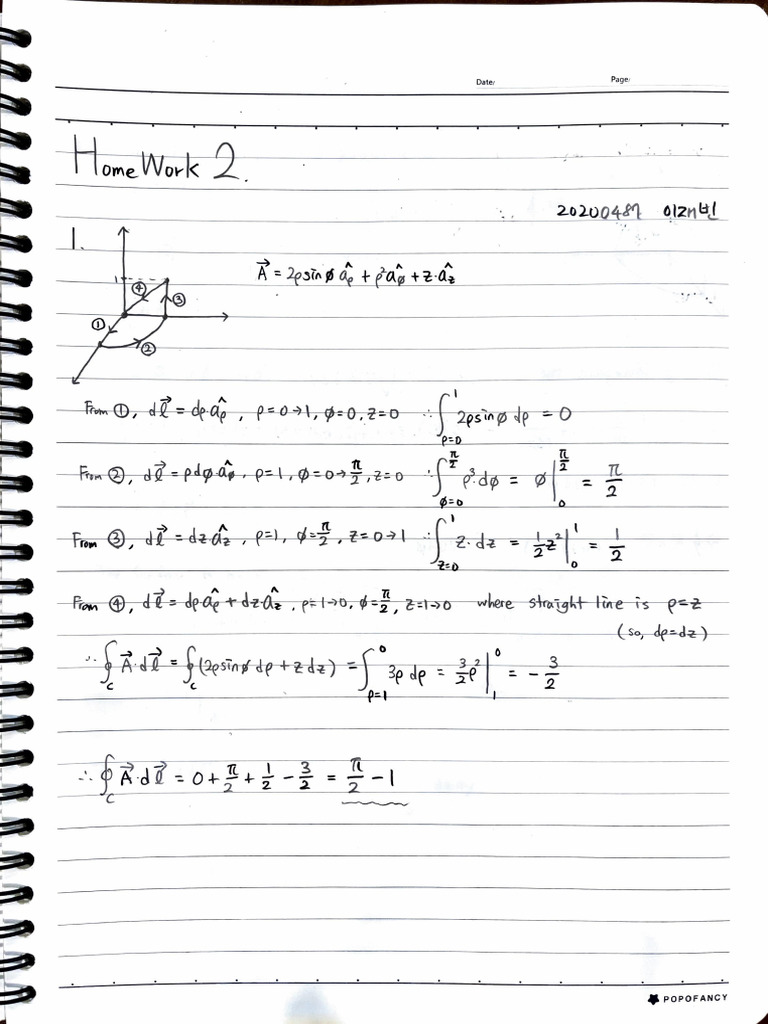 Date: Page:
HomeWork 2.
20200487 이재빈
1.
A⃗ = 2ρsinϕ âρ + ρ²âϕ + z·âz
1 ④ ③ ① ②
From ①, dl⃗ = dρ·âρ, ρ=0→1, ϕ=0, z=0 ∴∫_{ρ=0}^{1} 2ρsinϕ dρ = 0
From ②, dl⃗ = ρdϕ·âϕ, ρ=1, ϕ=0→π/2, z=0 ∴∫_{ϕ=0}^{π/2} ρ³·dϕ = ϕ|_{0}^{π/2} = π/2
From ③, dl⃗ = dz·âz, ρ=1, ϕ=π/2, z=0→1 ∴∫_{z=0}^{1} z·dz = 1/2z²|_{0}^{1} = 1/2
From ④, dl⃗ = dρ·âρ + dz·âz, ρ=1→0, ϕ=π/2, z=1→0 where straight line is ρ=z
(so, dρ=dz)
∴ ∮_C A⃗·dl⃗ = ∮_C (2ρsinϕ dρ + z dz) = ∫_{ρ=1}^{0} 3ρ dρ = 3/2ρ²|_{1}^{0} = -3/2
∴ ∮_C A⃗·dl⃗ = 0 + π/2 + 1/2 - 3/2 = π/2 - 1
POPOFANCY